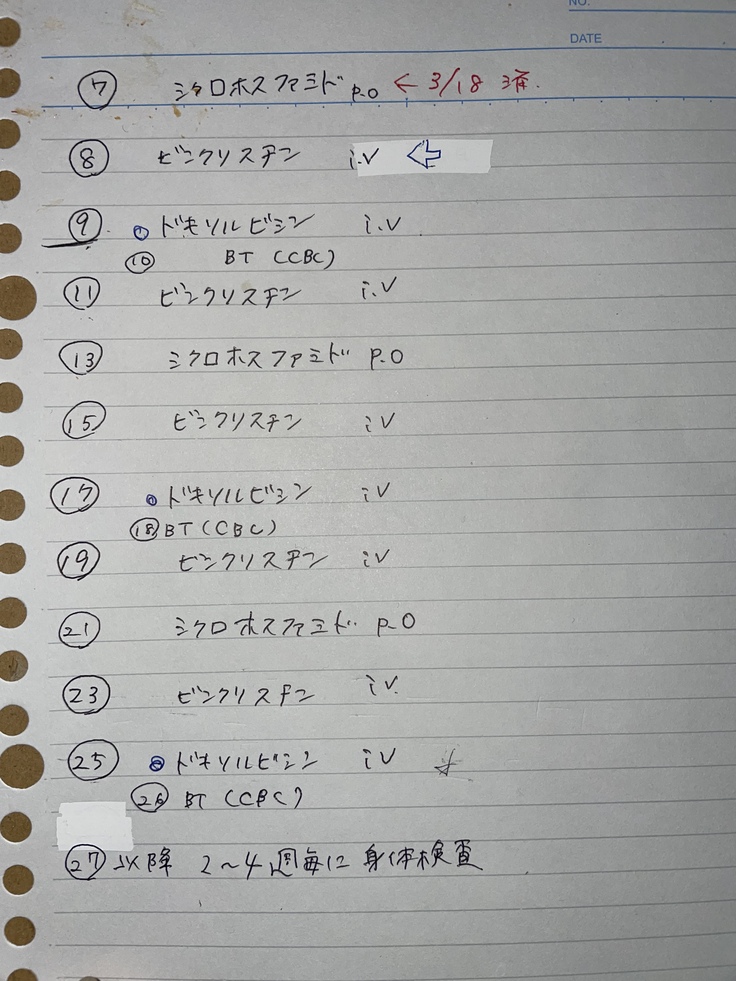 NO.
DATE
⑦ シクロホスファミド p.o ← 3/18 済.
⑧ ビンクリスチン i.v ⇦
⑨ ドキソルビシン i.v
⑩ BT (CBC)
⑪ ビンクリスチン i.v
⑬ シクロホスファミド p.o
⑮ ビンクリスチン iv
⑰ ドキソルビシン iv
⑱ BT (CBC)
⑲ ビンクリスチン iv
㉑ シクロホスファミド p.o
㉓ ビンクリスチン iv.
㉕ ドキソルビシン iv
㉖ BT (CBC)
㉗ 以降 2~4週毎に 身体検査